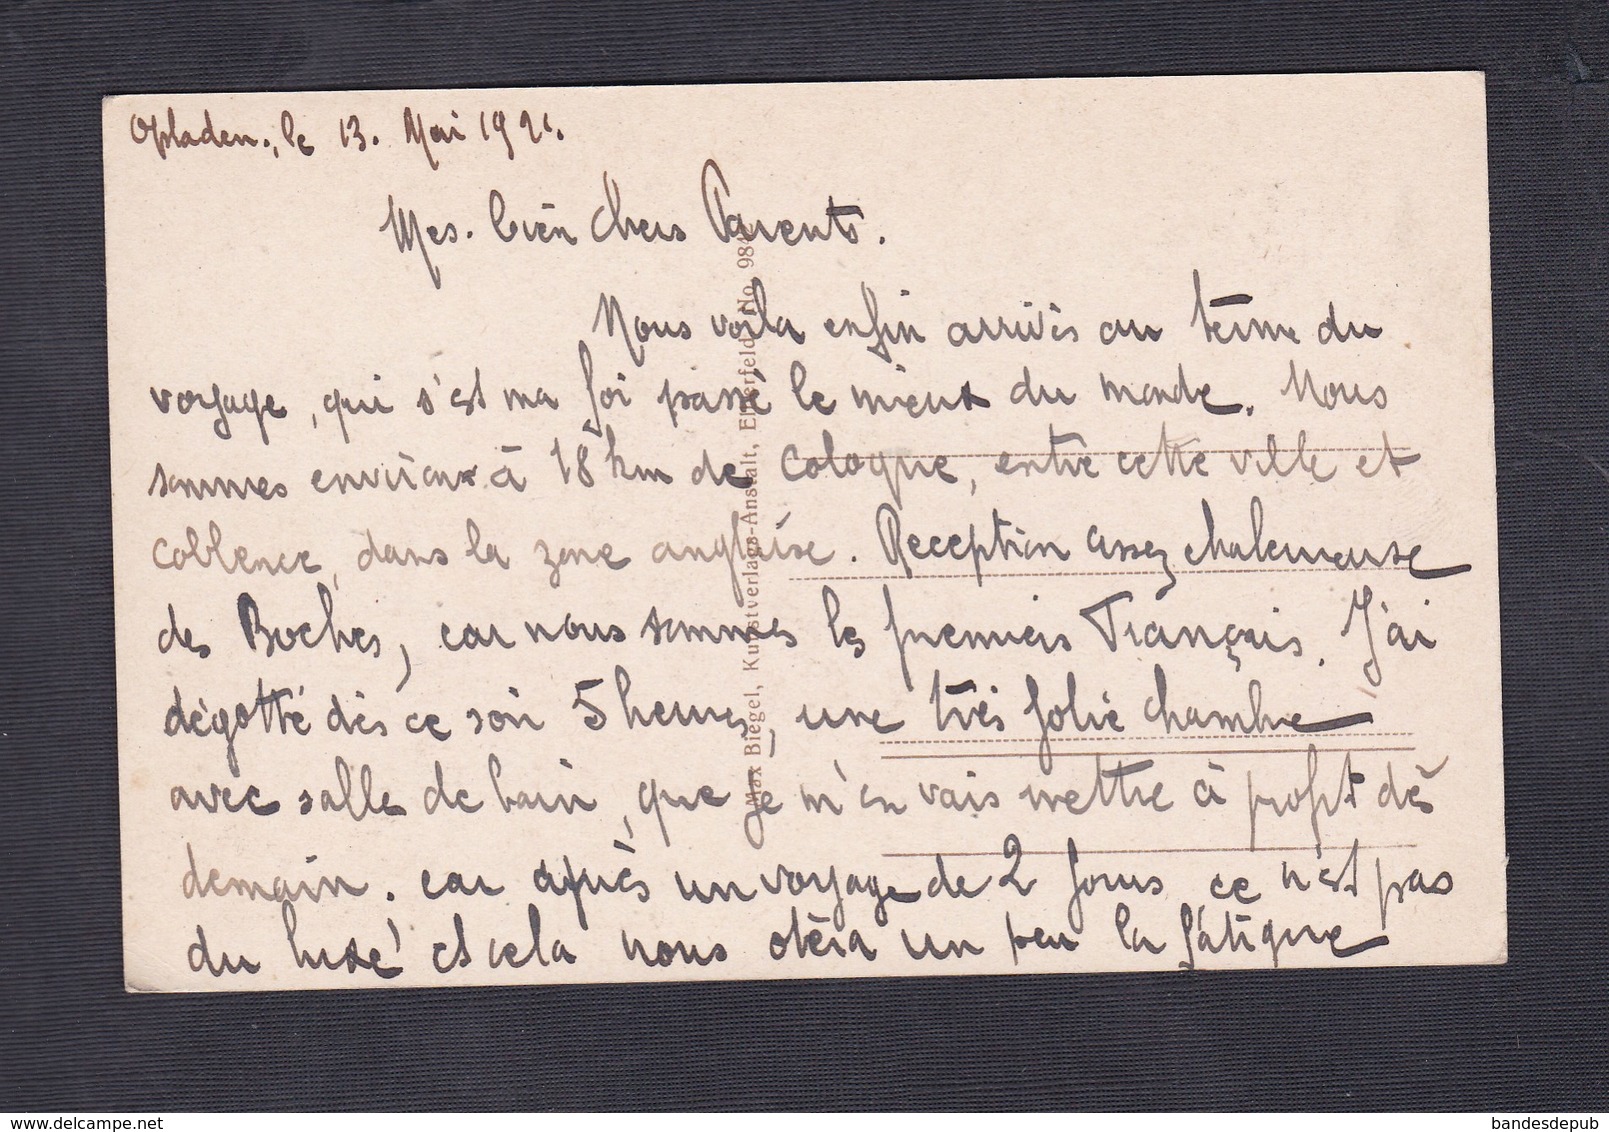 Opladen., le 13. Mai 1921.
Mes. bien chers Parents.
Nous voila enfin arrivés au terme du
voyage, qui s'est ma foi passé le mieux du monde. Nous
sommes environ à 18 km de Cologne, entre cette ville et
Coblence, dans la zone anglaise. Reception assez chaleureuse
des Boches, car nous sommes les premiers Français. J'ai
dégotté dès ce soir 5 heures, une très jolie chambre
avec salle de bain, que je m'en vais mettre à profit dès
demain. car après un voyage de 2 jours, ce n'est pas
du luxe et cela nous otèra un peu la fatigue
Max Biegel, Kunstverlags-Anstalt, Elberfeld. No. 984
bandesdepub